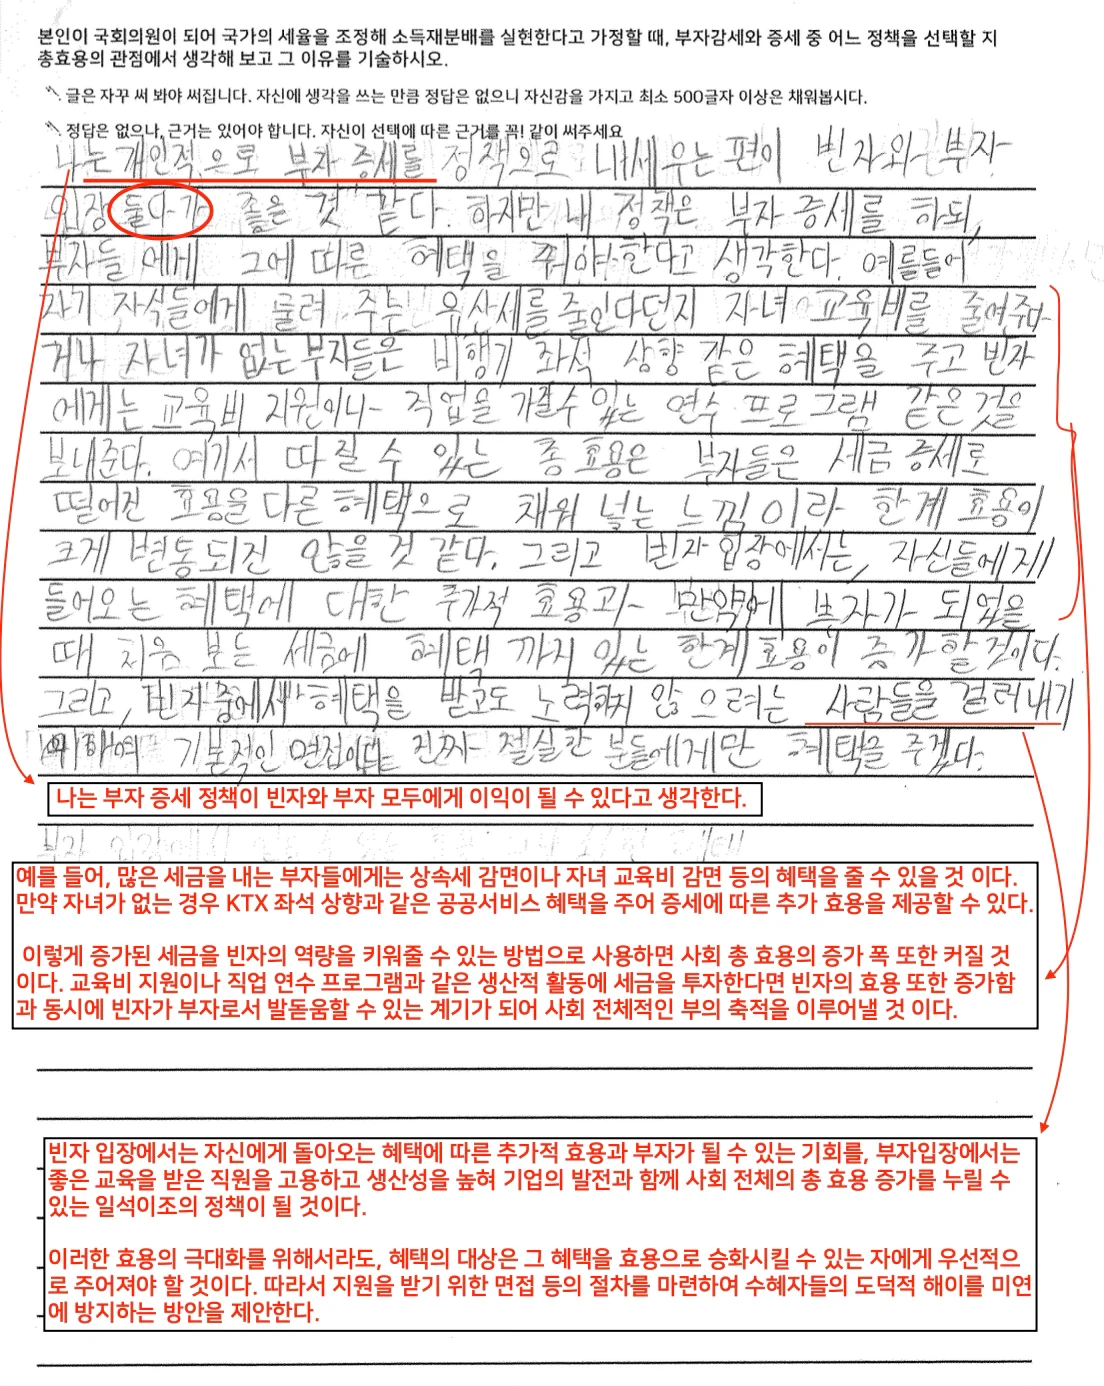 본인이 국회의원이 되어 국가의 세율을 조정해 소득재분배를 실현한다고 가정할 때, 부자감세와 증세 중 어느 정책을 선택할 지
총효용의 관점에서 생각해 보고 그 이유를 기술하시오.
글은 자꾸 써 봐야 써집니다. 자신에 생각을 쓰는 만큼 정답은 없으니 자신감을 가지고 최소 500글자 이상은 채워봅시다.
정답은 없으나, 근거는 있어야 합니다. 자신이 선택에 따른 근거를 꼭! 같이 써주세요
나는 개인적으로 부자 증세를 정책으로 내세우는 편이 빈자와 부자
입장 둘다가 좋을 것 같다. 하지만 내 정책은 부자 증세를 하되,
부자들에게 그에 따른 혜택을 줘야한다고 생각한다. 예를들어
자기 자식들에게 물려 주는 유산세를 줄인다던지 자녀 교육비를 줄여주
거나 자녀가 없는 부자들은 비행기 좌석 상향 같은 혜택을 주고 빈자
에게는 교육비 지원이나 직업을 가질수 있는 연수 프로그램 같은것을
보내준다. 여기서 따질 수 있는 총 효용은 부자들은 세금 증세로
떨어진 효용을 다른 혜택으로 채워 넣는 느낌이라 한계 효용이
크게 변동되진 않을것 같다. 그리고 빈자 입장에서는, 자신들에게
들어오는 혜택에 대한 추가적 효용과 만약에 부자가 되었을
때 처음 보는 세금에 혜택 까지 있는 한계효용이 증가할것이다.
그리고, 빈자중에서 혜택을 받고도 노력하지 않으려는 사람들을 걸러내기
위하여 기본적인 면접이나 진짜 절실한 분들에게만 혜택을 주겠다.
나는 부자 증세 정책이 빈자와 부자 모두에게 이익이 될 수 있다고 생각한다.
부자 입장에서
예를 들어, 많은 세금을 내는 부자들에게는 상속세 감면이나 자녀 교육비 감면 등의 혜택을 줄 수 있을 것 이다.
만약 자녀가 없는 경우 KTX 좌석 상향과 같은 공공서비스 혜택을 주어 증세에 따른 추가 효용을 제공할 수 있다.
이렇게 증가된 세금을 빈자의 역량을 키워줄 수 있는 방법으로 사용하면 사회 총 효용의 증가 폭 또한 커질 것
이다. 교육비 지원이나 직업 연수 프로그램과 같은 생산적 활동에 세금을 투자한다면 빈자의 효용 또한 증가함
과 동시에 빈자가 부자로서 발돋움할 수 있는 계기가 되어 사회 전체적인 부의 축적을 이루어낼 것 이다.
빈자 입장에서는 자신에게 돌아오는 혜택에 따른 추가적 효용과 부자가 될 수 있는 기회를, 부자입장에서는
좋은 교육을 받은 직원을 고용하고 생산성을 높혀 기업의 발전과 함께 사회 전체의 총 효용 증가를 누릴 수
있는 일석이조의 정책이 될 것이다.
이러한 효용의 극대화를 위해서라도, 혜택의 대상은 그 혜택을 효용으로 승화시킬 수 있는 자에게 우선적으
로 주어져야 할 것이다. 따라서 지원을 받기 위한 면접 등의 절차를 마련하여 수혜자들의 도덕적 해이를 미연
에 방지하는 방안을 제안한다.